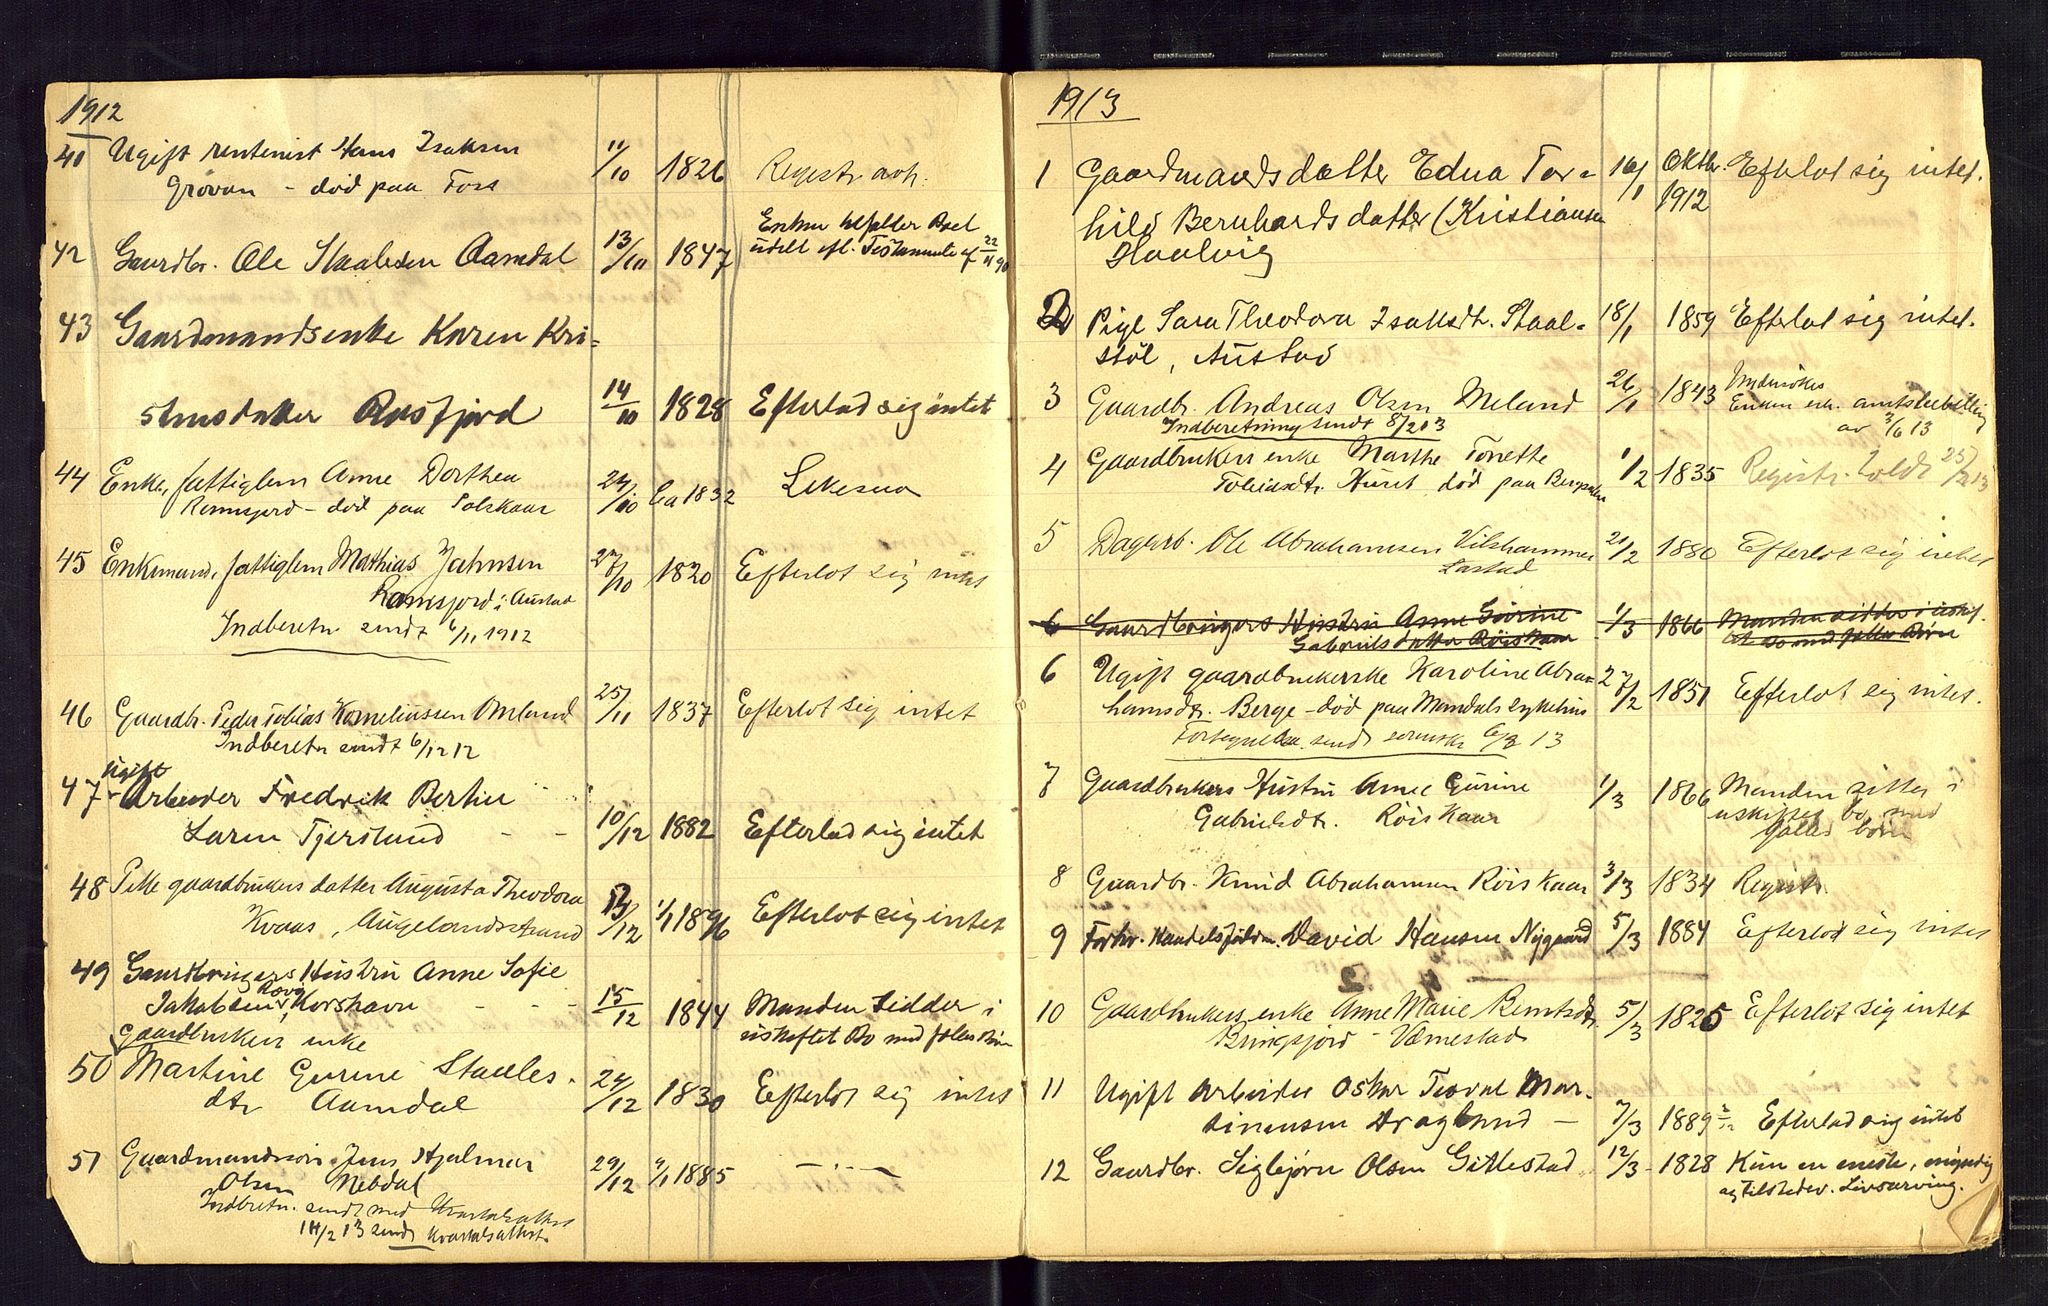 1912
41 Ugift rentenist Hans Isaksen 11/10 1826 Registr. avh.
Grovan - død paa Foss
42 Gaardbr. Ole Staalesen Aamdal 13/10 1847 Enken beholder Boet
udelt efl. Testamente af 22/11 90
43 Gaardmandsenke Karen Kri-
stensdatter Rosfjord 14/10 1828 Efterlad sig intet
44 Enke, fattiglem Anne Dorthea 24/10 Ca 1832 Likesaa
Ramsjord - død paa Solskaar
45 Enkemand, fattiglem Mathias Jahnsen 27/10 1820 Efterlot sig intet
Ramsjord i Austad
Indberetn sendt 6/11 1912
46 Gaardbr. Peder Tobias Korneliussen Omland 25/11 1837 Efterlot sig intet
Indberetn sendt 6/12 12
ugift
47 Arbeider Fredrik Bertin
Larsen Tjersland - - 10/12 1882 Efterlad sig intet
48 Pike gaardbrukers datter Augusta Theodora 13/12 1/1 1896 Efterlot sig intet
Kvaas, Augelandsstrand
49 Gaardbrugers Hustru Anne Sofie
Jakobsen, Korshavn - - - 15/12 1844 Manden sidder i
uskiftet Bo med fælles Børn
Gaardbrukers enke
50 Martine Gurine Staales- 24/12 1830 Efterlot sig intet
dtr Aamdal
51 Gaardmandssøn Jens Hjalmar 29/12 9/1 1885 - . -
Olsen Nebdal
Indbretn. sendt med Kvartalsattest
14/2 13 sendt Kvartalsattest
1913
1 Gaardmandsdatter Edna Tor- 16/1 Oktbr. 1912 Efterlot sig intet.
hild Bernhardsdatter (Kristiansen
Haalvig
2 Pige Sara Theodora Isaksdtr. Staal- 18/1 1859 Efterlot sig intet.
støl, Austad
3 Gaardbr. Andreas Olsen Meland 26/1 1843 Undersøkes
Enken erh. amtsbevilling
av 3/6 13
Indberetning sendt 8/2 13
4 Gaardbrukers enke Marthe Tonette 1/2 1835 Registr. holdt 25/2 13
Tobiasdtr. Huset, død paa
5 Dagarb. Ole Abrahamsen Vilshammer 21/2 1880 Efterlot sig intet
Lastad
6 Gaardbrugers Hustru Anne Gurine 1/3 1866 Manden sidder i uskif-
tet Bo med fælles Børn
Gabrielsdatter Røiskaar
6 Ugift gaardbrukerske Karoline Abra- 27/2 1851 Efterlot sig intet.
hamsdtr. Berge - død paa Mandals sykehus
Fortegnelse sendt sorenskr 6/3 13
7 Gaardbrukers Hustru Anne Gurine 1/3 1866 Manden sitter i
uskiftet bo med
fælles børn
Gabrielsdtr. Røiskaar
8 Gaardbr. Knud Abrahamsen Røiskaar 3/3 1834 Registr.
9 Forhv. Handelsfuldm. David Hansen Nygaard 5/3 1884 Efterlot sig intet
10 Gaardbrukers enke Anne Marie Berntsdtr. 5/3 1825 Efterlot sig intet
Bringsjord - Værnestad
11 Ugift Arbeider Oskar Teodal Mar-
tinusen Dragland - 7/3 1889 2/12 Efterlad sig intet
12 Gaardbr. Sigbjørn Olsen Gitlestad 12/3 - 1828 Kun en eneste, myndig
og tilstedev. Livsarving.